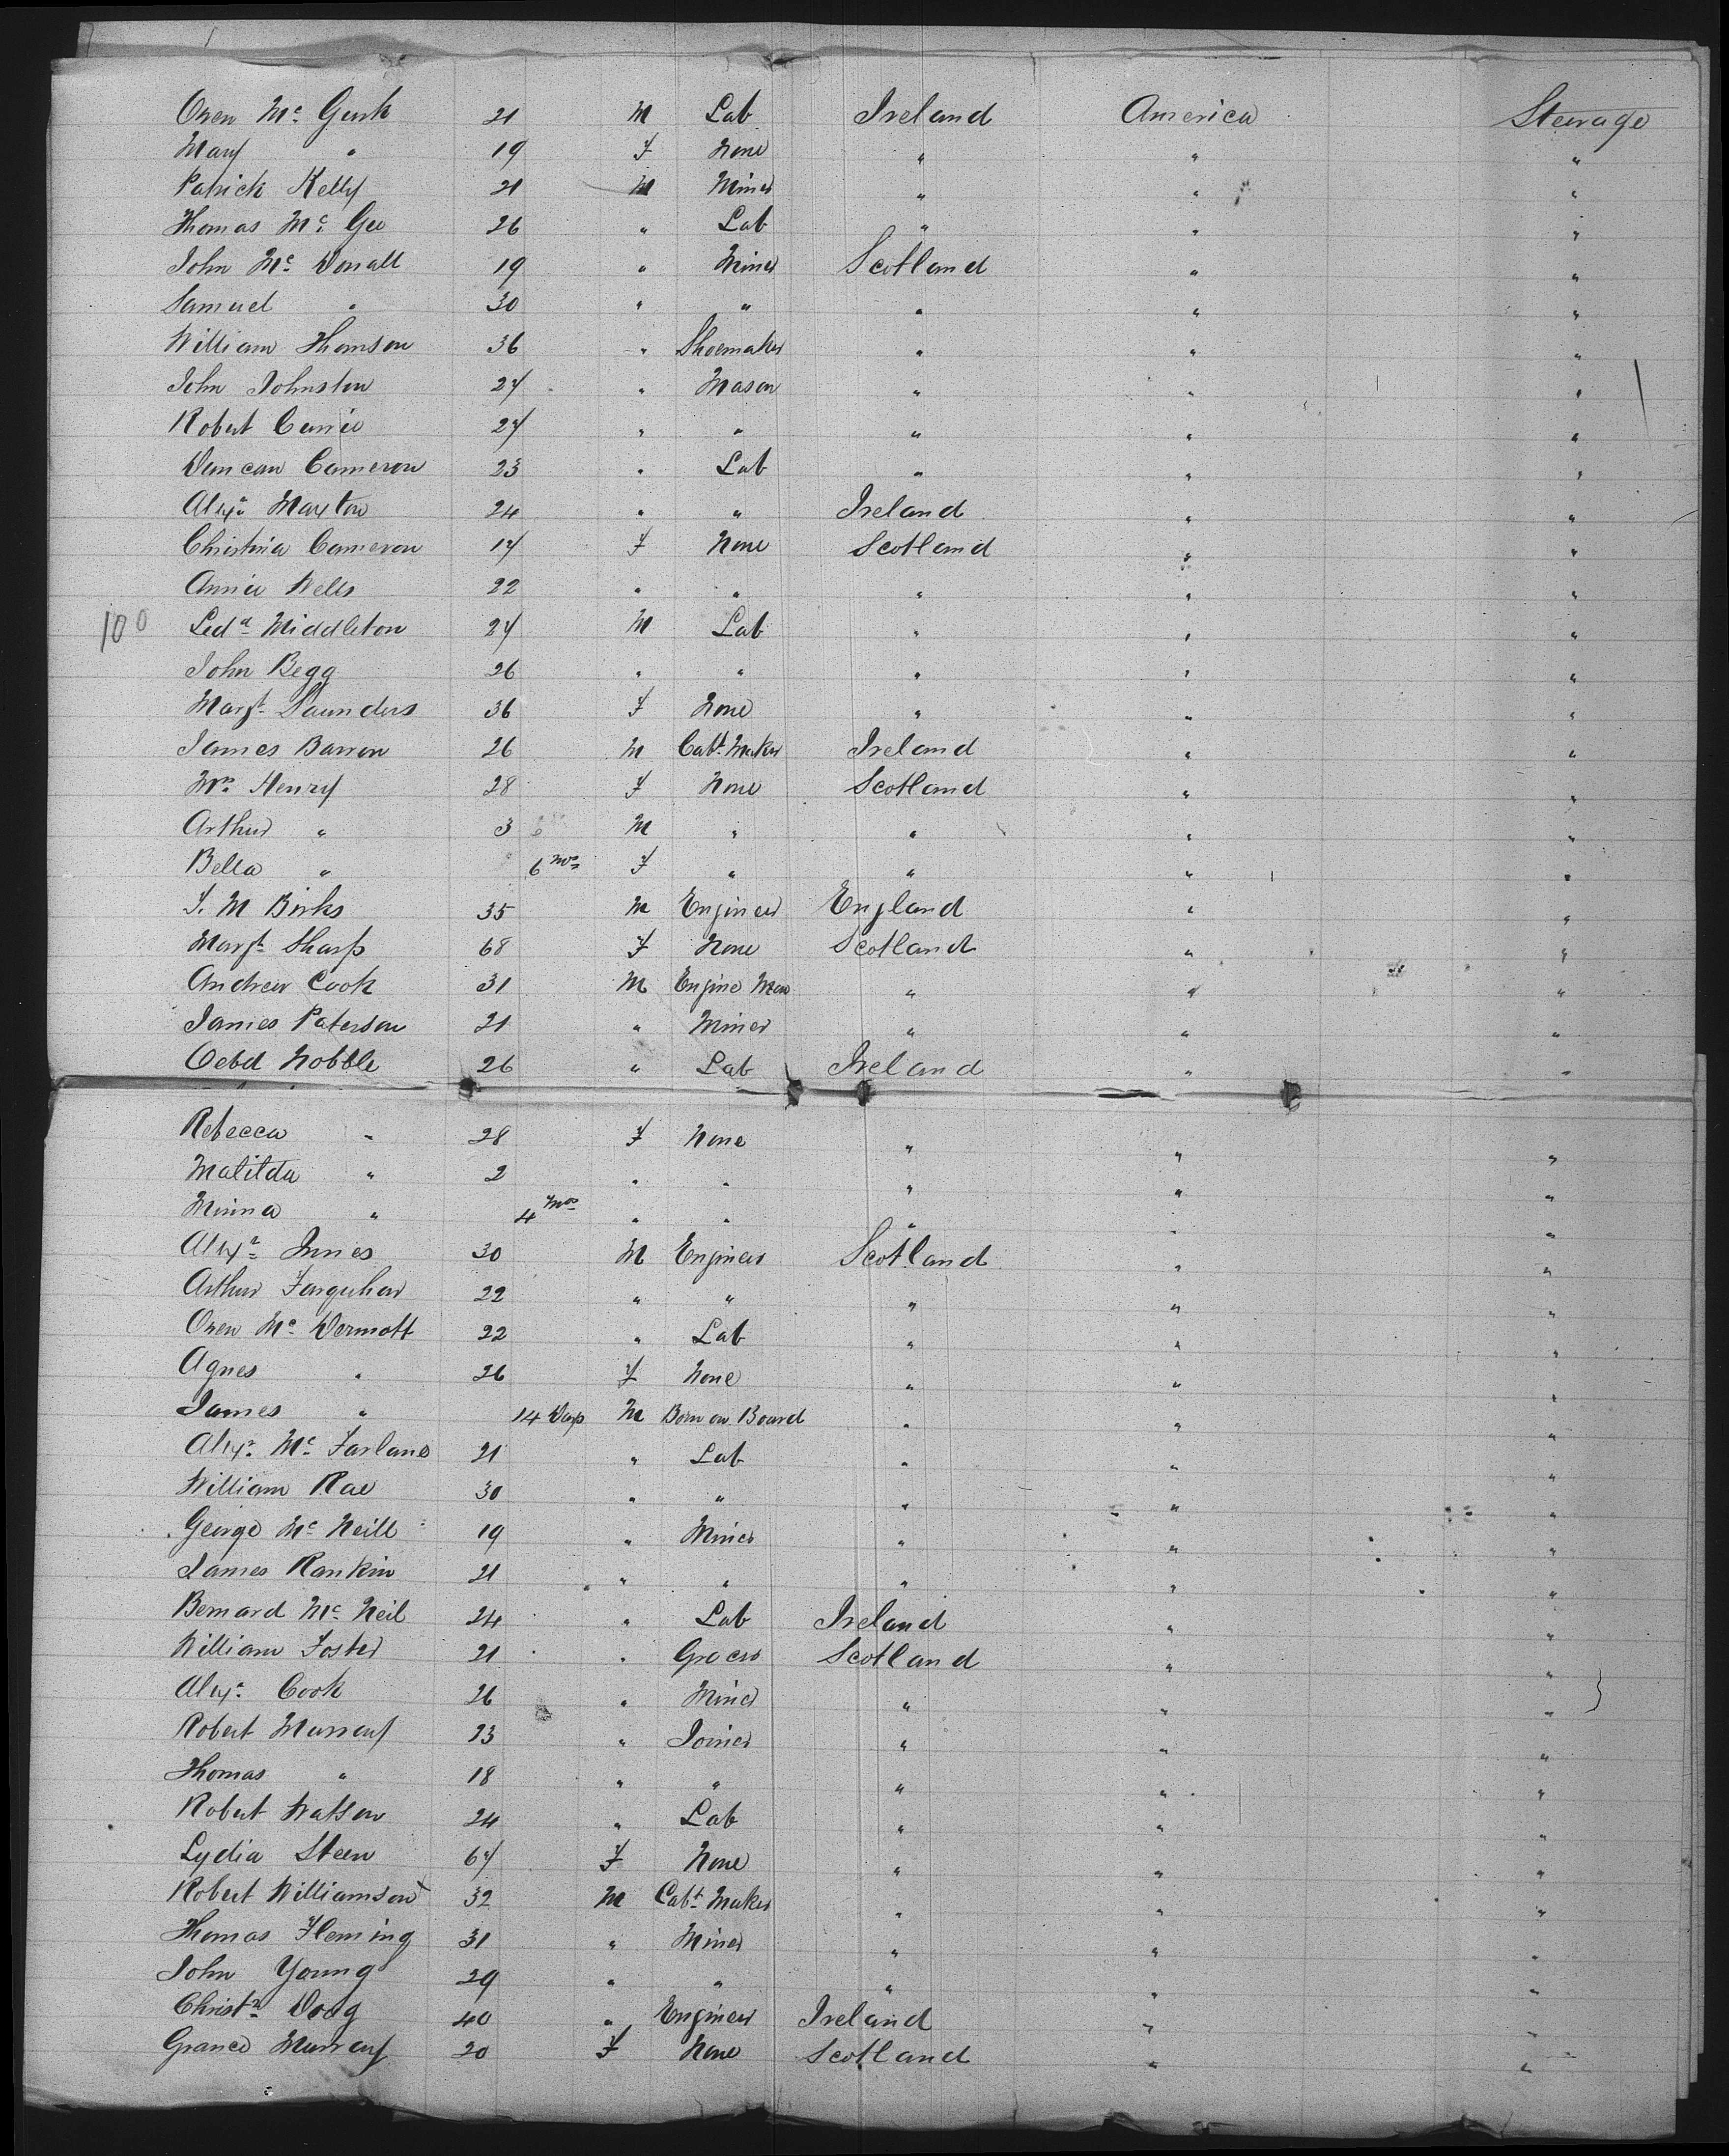 Owen Mc Gurk 21 M Lab Ireland America Steerage
Mary " 19 F None " " "
Patrick Kelly 21 M Miner " " "
Thomas Mc Gee 26 " Lab " " "
John Mc Donall 19 " Miner Scotland " "
Samuel " 30 " " " " "
William Thomson 36 " Shoemaker " " "
John Johnston 27 " Mason " " "
Robert Currie 27 " " " " "
Duncan Cameron 23 " Lab " " "
Alexr Maxton 24 " " Ireland " "
Christina Cameron 17 F None Scotland " "
Annie Wells 22 " " " " "
100 Middleton 27 M Lab " " "
John Begg 26 " " " " "
Margt Saunders 36 F None " " "
James Barron 26 M Cabt Maker Ireland " "
Mrs Henry 28 F None Scotland " "
Arthur " 3 M " " " "
Bella " 6 mos F " " " "
J. M Birks 35 M Engineer England " "
Margt Sharp 68 F None Scotland " "
Andrew Cook 31 M Engine Man " " "
James Paterson 21 " Miner " " "
Nobble 26 " Lab Ireland " "
Rebecca " 28 F None " " "
Matilda " 2 " " " " "
Minna " 4 Mos " " " " "
Alexr Innes 30 M Engineer Scotland " "
Arthur Farquhar 22 " " " " "
Owen Mc Dermott 22 " Lab " " "
Agnes " 26 F None " " "
James " 14 Days M Born on Board " " "
Alexr Mc Farlane 21 " Lab " " "
William Rae 30 " " " " "
George Mc Neill 19 " Miner " " "
James Rankin 21 " " " " "
Bernard Mc Neil 24 " Lab Ireland " "
William Foster 21 " Grocer Scotland " "
Alexr Cook 26 " Miner " " "
Robert Murray 23 " Joiner " " "
Thomas " 18 " " " " "
Robert Watson 24 " Lab " " "
Lydia Steen 67 F None " " "
Robert Williamson 32 M Cabt Maker " " "
Thomas Fleming 31 " Miner " " "
John Young 29 " " " " "
Christr Doag 40 " Engineer Ireland " "
Grance Murray 20 F None Scotland " "